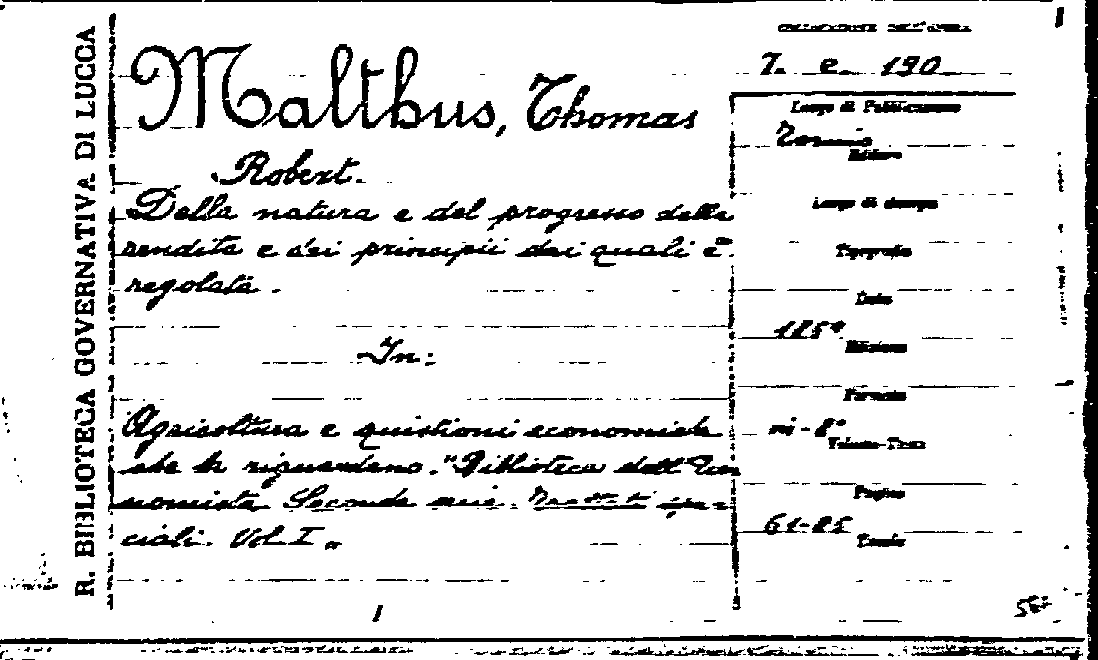 R. BIBLIOTECA GOVERNATIVA DI LUCCA
Malthus, Thomas
Robert.
Della natura e del progresso della
rendita e dei principii dai quali è
regolata.
In:
Agricoltura e quistioni economiche
che la riguardano. "Biblioteca dell'Eco
nomista Seconda serie. Trattati spe
ciali. Vol. I„
1
COLLOCAZIONE DELL'OPERA
7. e. 190
Luogo di Pubblicazione
Torino
Editore
Luogo di stampa
Tipografia
Data
Edizione
Formato
in-8°
Volume-Tomo
Pagine
61-85